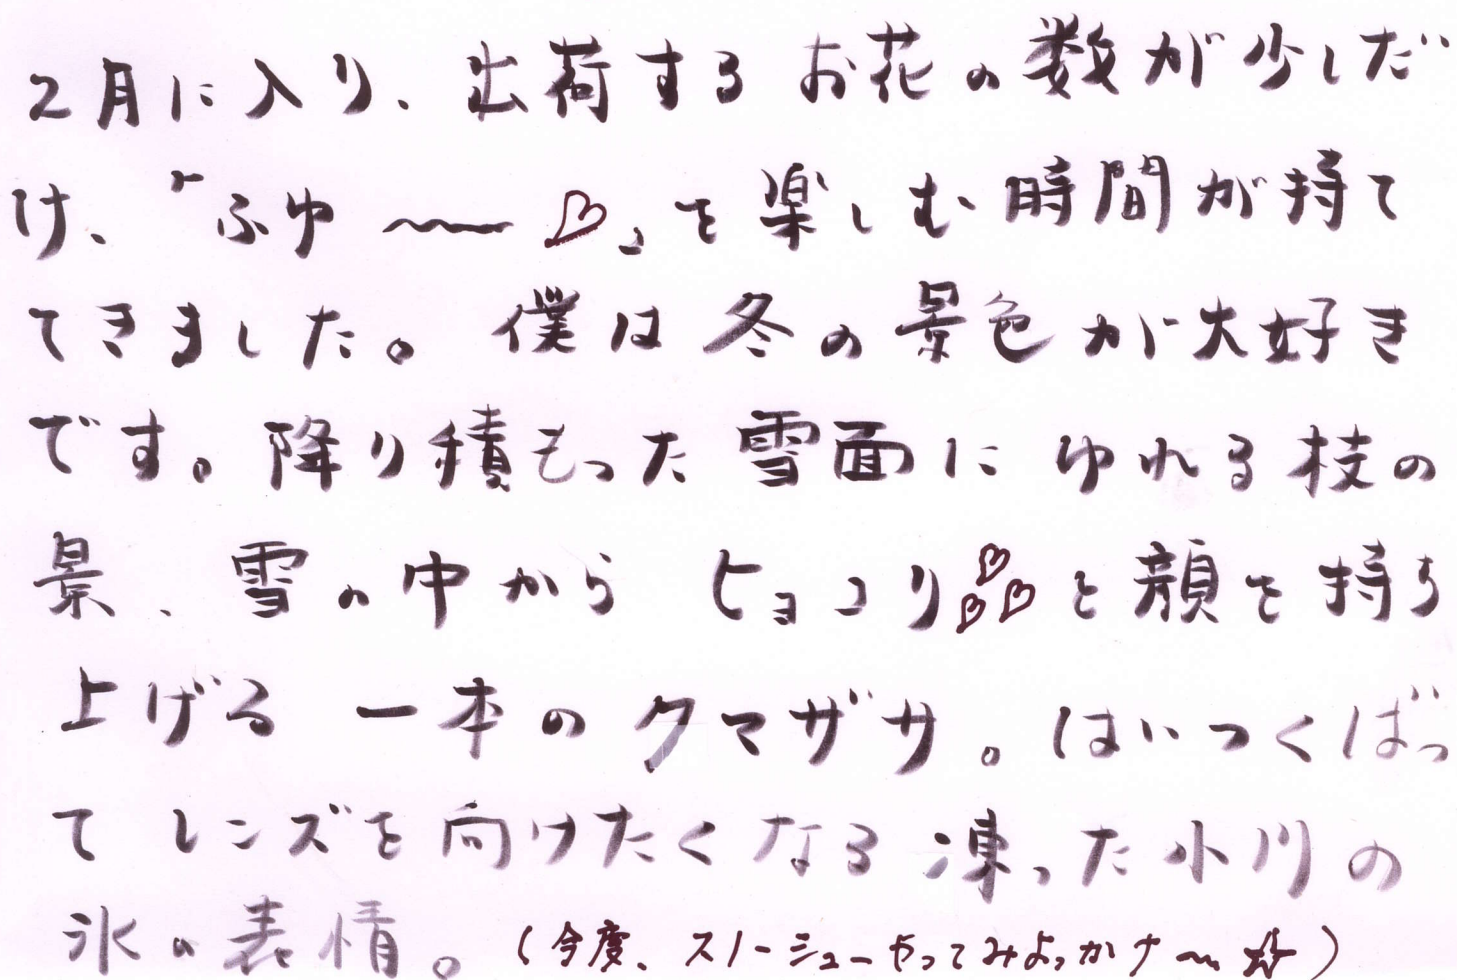 2月に入り、出荷するお花の数が少しだ
け、「ふゆ〜♡」を楽しむ時間が持て
てきました。僕は冬の景色が大好き
です。降り積もった雪面にゆれる枝の
景、雪の中からヒョコリ♡♡♡と顔を持ち
上げる一本のクマザサ。はいつくばっ
てレンズを向けたくなる凍った小川の
氷の表情。(今度、スノーシューやってみよっかナ〜☆)